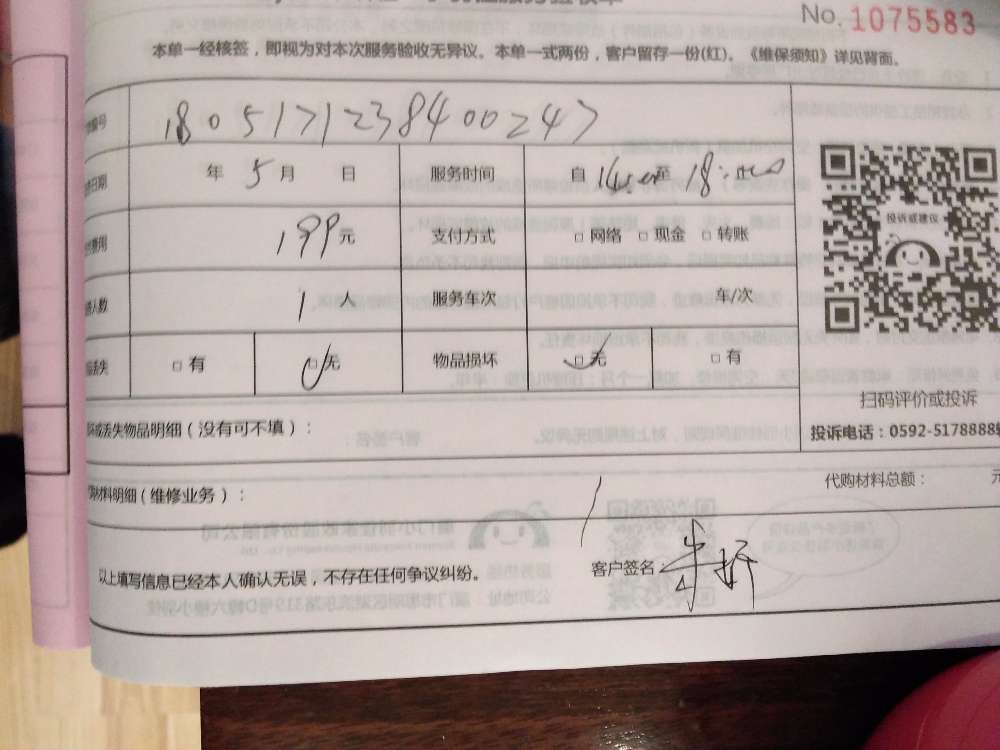 No. 1075583
本单一经核签，即视为对本次服务验收无异议。本单一式两份，客户留存一份(红)。《维保须知》详见背面。
编号 1805171238400247
日期 年 5 月 日 服务时间 自 至 18:
费用 199 元 支付方式 □ 网络 □ 现金 □ 转账
人数 1 人 服务车次 车/次
丢失 □ 有 □ 无 物品损坏 □ 无 □ 有
投诉或建议
扫码评价或投诉
投诉电话：0592-5178888
或丢失物品明细（没有可不填）：
材料明细（维修业务）： 代购材料总额： 元
以上填写信息已经本人确认无误，不存在任何争议纠纷。 客户签名